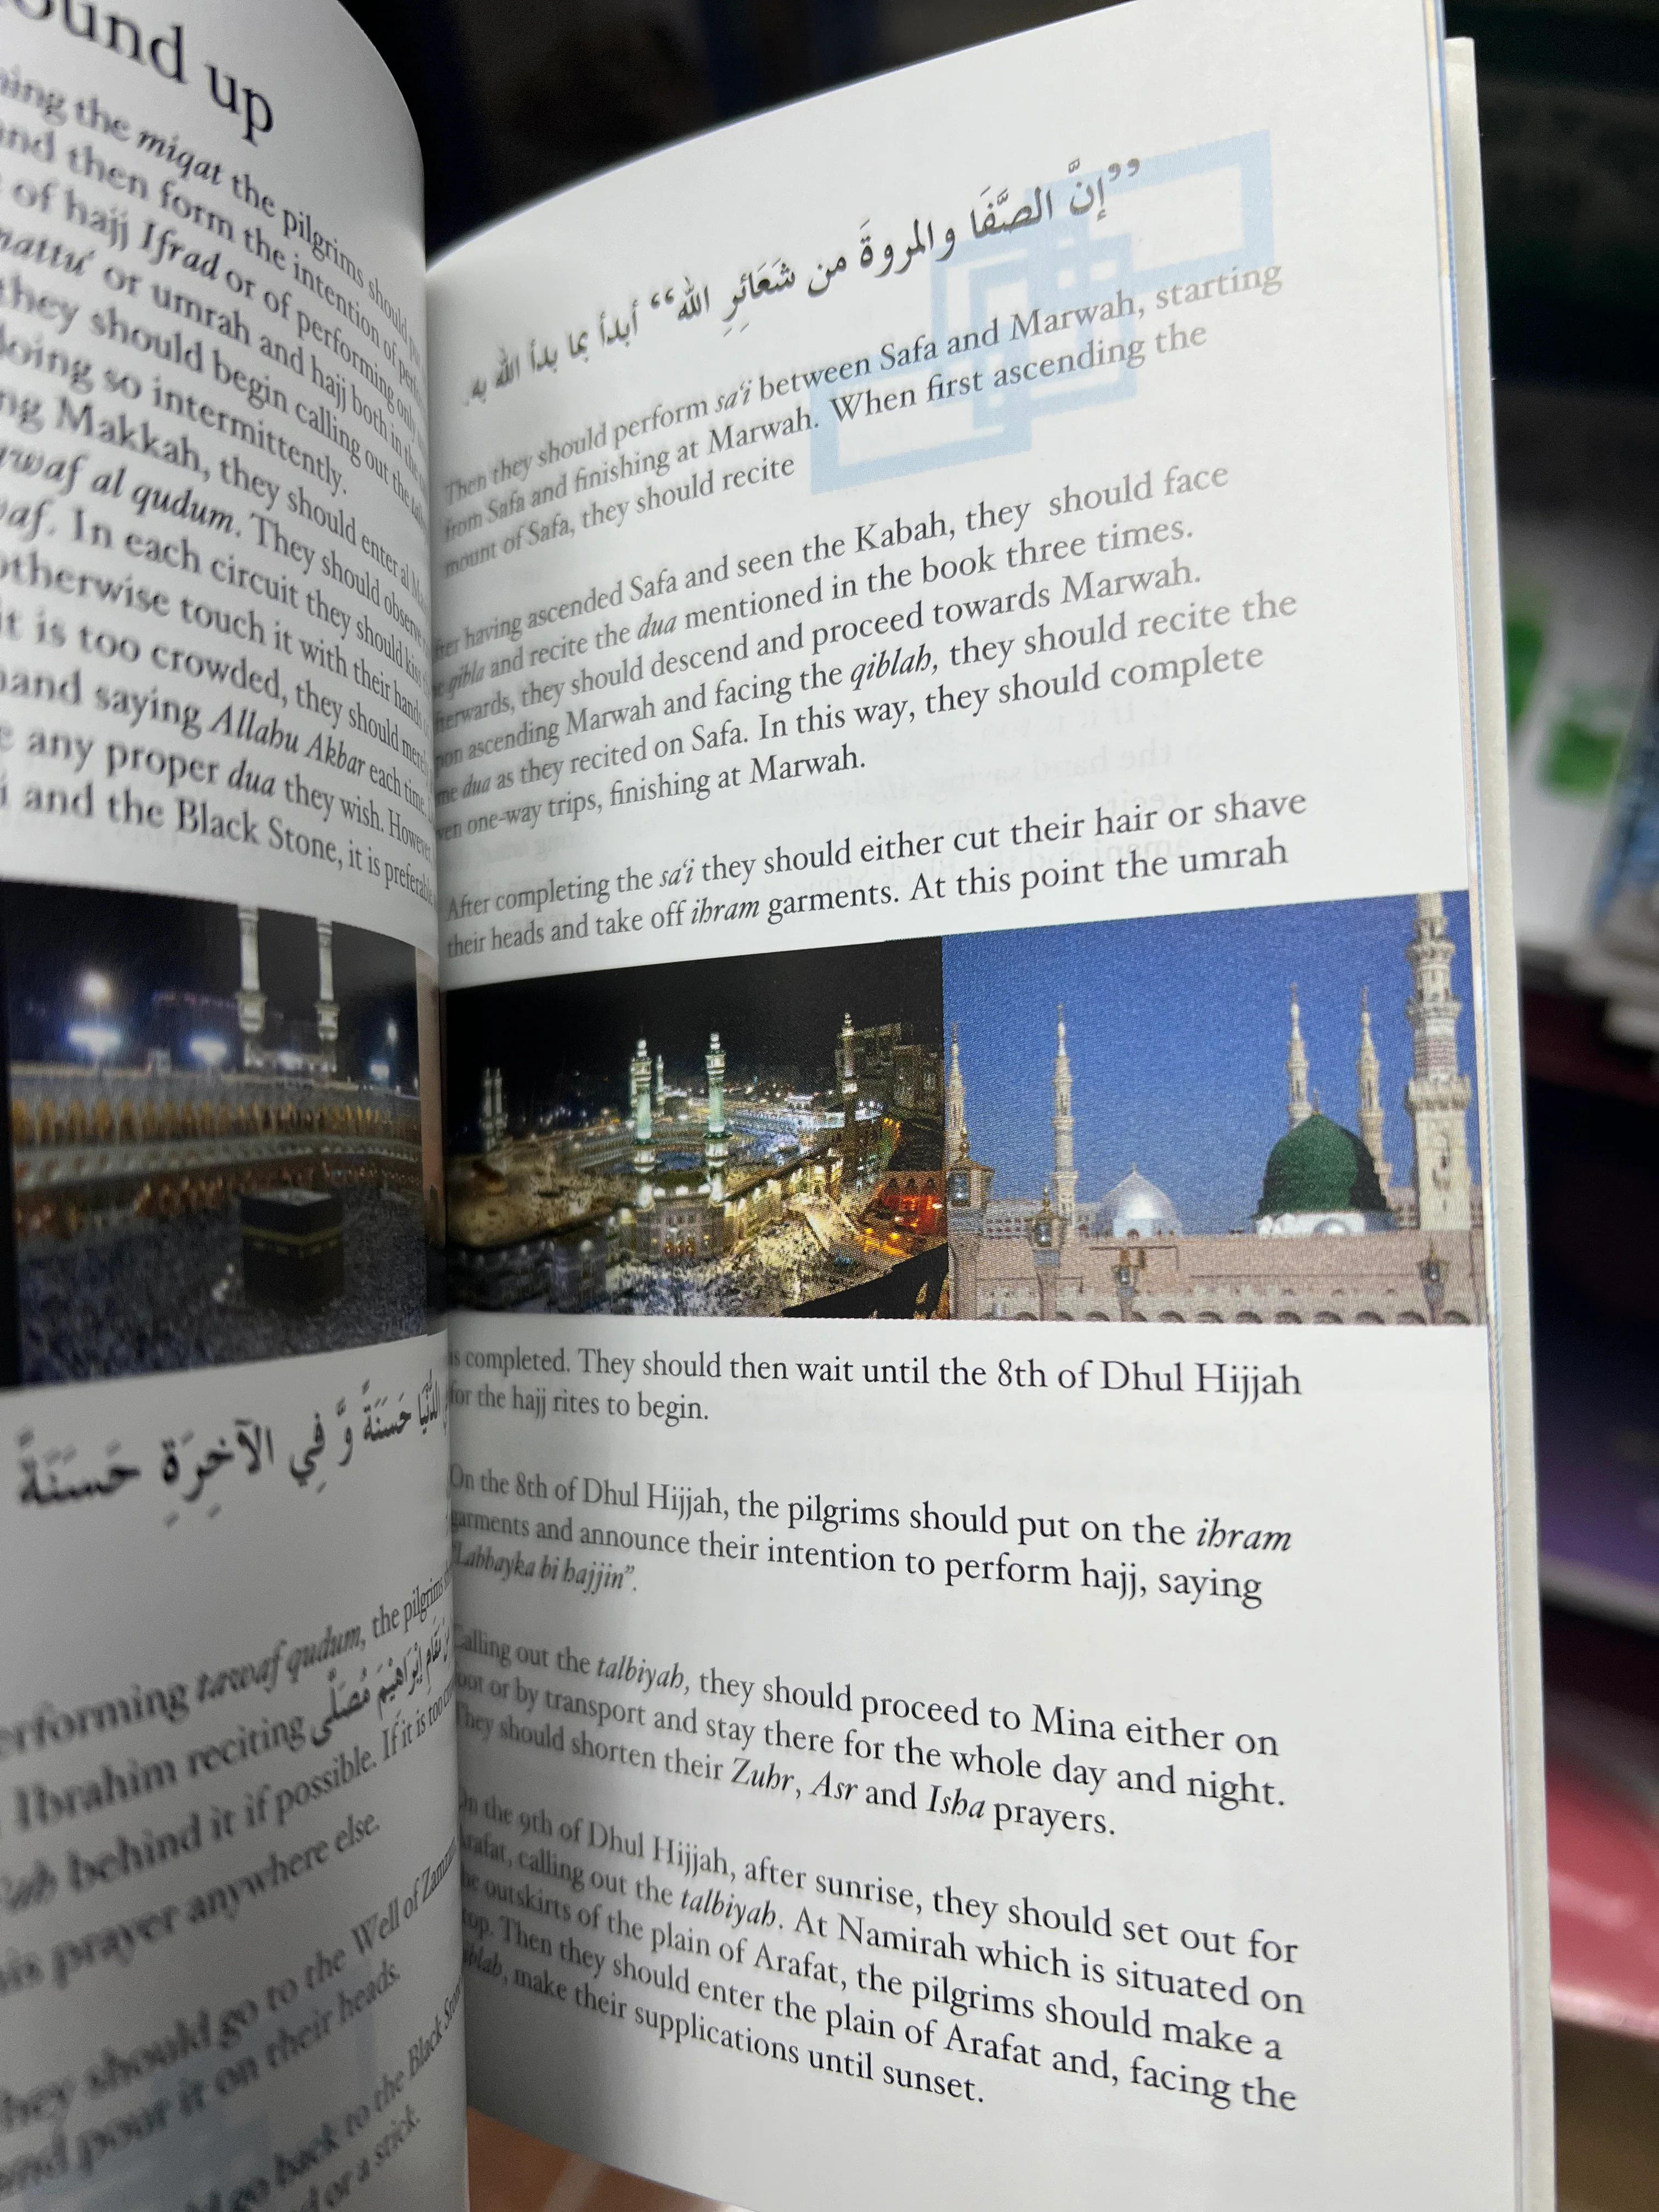 ound up
ning the miqat the pilgrims should
and then form the intention of
of hajj Ifrad or of performing only
mattu' or umrah and hajj both in the
they should begin calling out the
doing so intermittently.
ng Makkah, they should enter al
awaf al qudum. They should observe
waf. In each circuit they should kiss
otherwise touch it with their hands
it is too crowded, they should
hand saying Allahu Akbar each time.
e any proper dua they wish. However
i and the Black Stone, it is preferable
حَسَنَةً وَّ فِي الآخِرَةِ حَسَنَةً
erforming tawaf qudum, the pilgrims
Ibrahim reciting مَقَامِ إِبْرَاهِيْمَ مُصَلًّى
behind it if possible. If it is too
his prayer anywhere else.
They should go to the Well of Zamzam
and pour it on their heads.
go back to the Black Stone
or a stick.
”إِنَّ الصَّفَا والمروةَ من شَعَائِرِ الله“ أبدأ بما بدأ الله به.
Then they should perform sa'i between Safa and Marwah, starting
from Safa and finishing at Marwah. When first ascending the
mount of Safa, they should recite
fter having ascended Safa and seen the Kabah, they should face
e qibla and recite the dua mentioned in the book three times.
fterwards, they should descend and proceed towards Marwah.
pon ascending Marwah and facing the qiblah, they should recite the
me dua as they recited on Safa. In this way, they should complete
ven one-way trips, finishing at Marwah.
After completing the sa'i they should either cut their hair or shave
their heads and take off ihram garments. At this point the umrah
is completed. They should then wait until the 8th of Dhul Hijjah
for the hajj rites to begin.
On the 8th of Dhul Hijjah, the pilgrims should put on the ihram
garments and announce their intention to perform hajj, saying
"Labbayka bi hajjin".
Calling out the talbiyah, they should proceed to Mina either on
oot or by transport and stay there for the whole day and night.
They should shorten their Zuhr, Asr and Isha prayers.
On the 9th of Dhul Hijjah, after sunrise, they should set out for
Arafat, calling out the talbiyah. At Namirah which is situated on
he outskirts of the plain of Arafat, the pilgrims should make a
top. Then they should enter the plain of Arafat and, facing the
iblah, make their supplications until sunset.